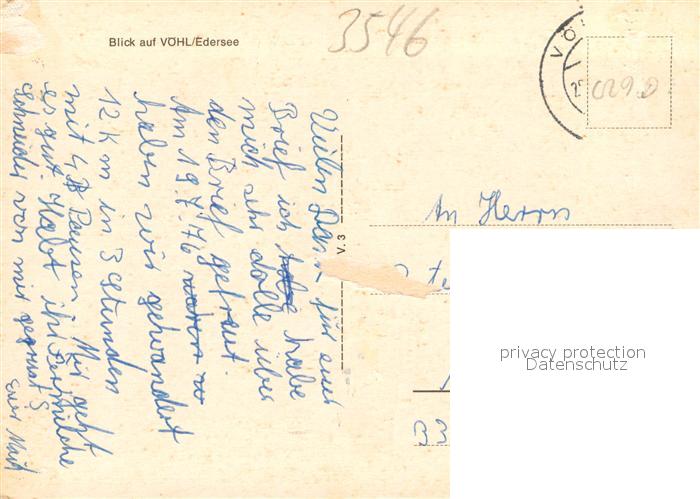 Blick auf VÖHL/Edersee
3546
VÖ
Vielen Dank für eure
Brief ich habe
mich sehr dolle über
den Brief gefreut.
Am 19.7.76 waren w
haben wir gewandert
12 km in 3 Stunden
mit 4 Pausen. Mir geht
es gut. Habt ihr
Schneider von mir gegrüst
V. 3
An Herrn
privacy protection
Datenschutz